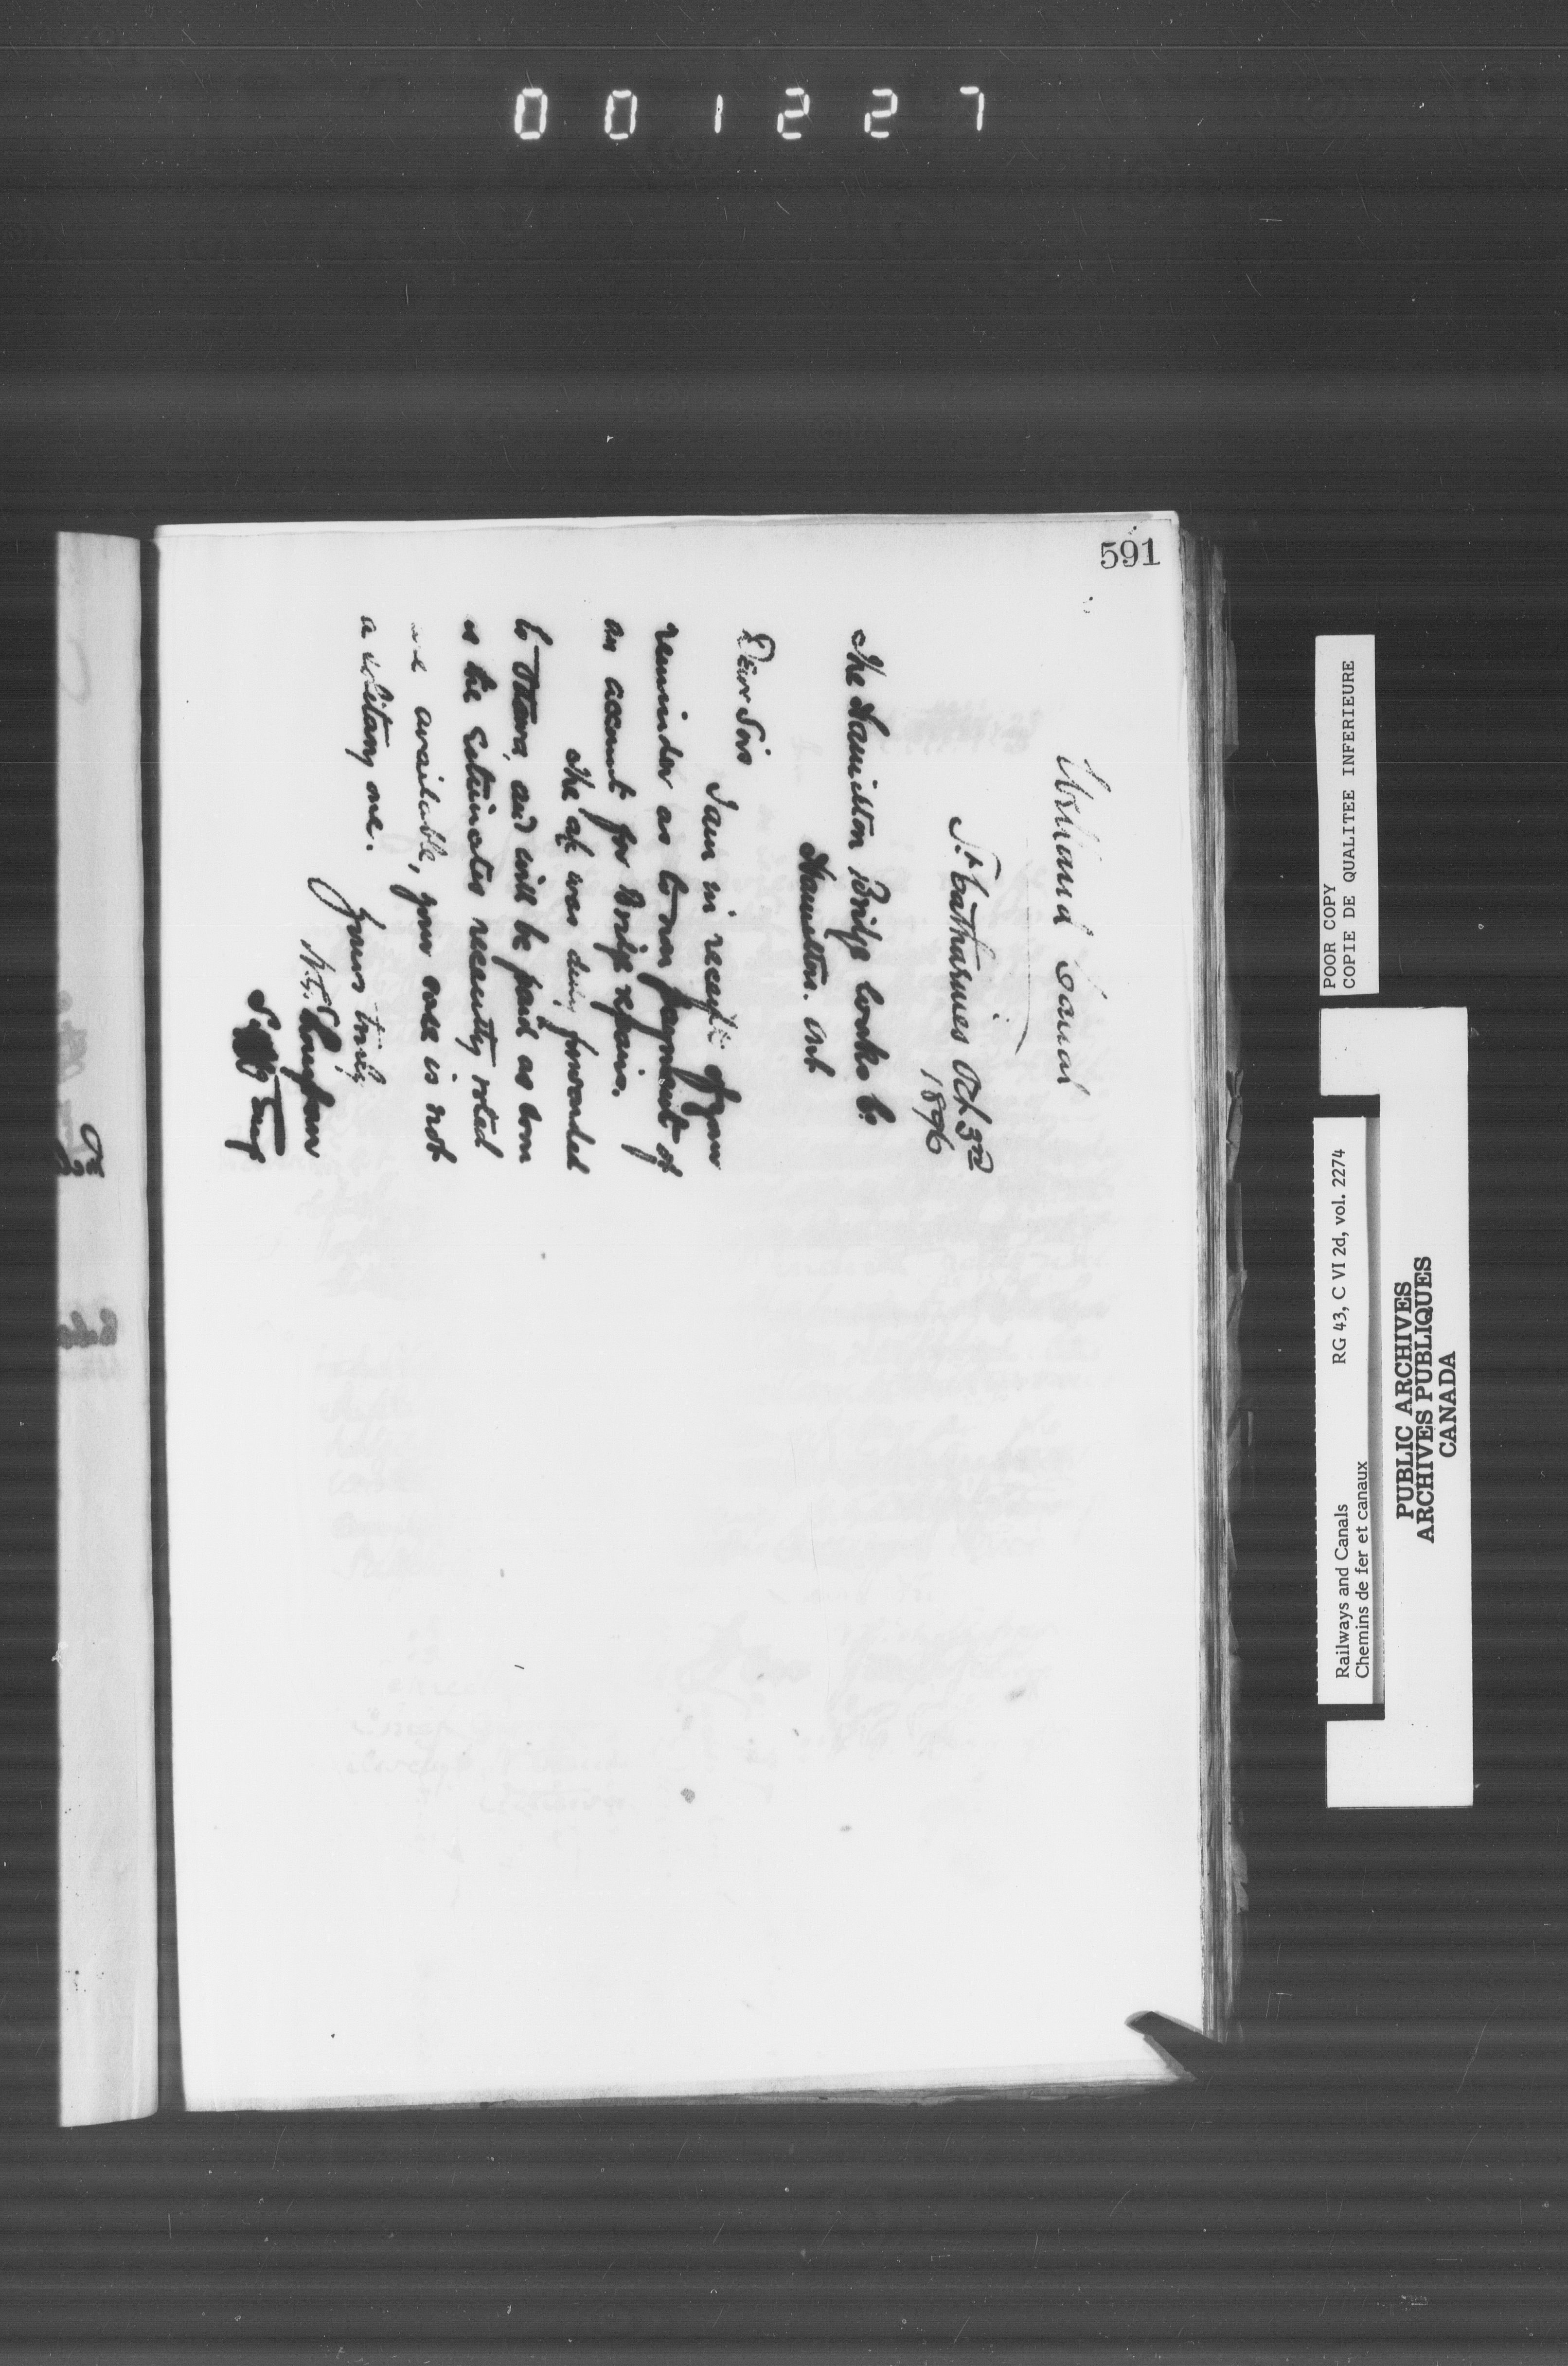 001227
591
Welland Canal
St Catharines Oct 3rd
1896
The Hamilton Bridge Works Co
Hamilton. Ont
Dear Sirs
I am in receipt of your
reminder as to non payment of
an account for Bridge repairs.
The a/c was duly forwarded
to Ottawa, and will be paid as soon
as the Estimates recently voted
are available, your case is not
a solitary one.
Yours truly
W. G. Thompson
POOR COPY
COPIE DE QUALITEE INFERIEURE
Railways and Canals
Chemins de fer et canaux
RG 43, C VI 2d, vol. 2274
PUBLIC ARCHIVES
ARCHIVES PUBLIQUES
CANADA